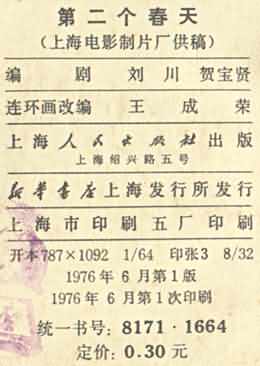 第二个春天
(上海电影制片厂供稿)
编 剧 刘 川 贺宝贤
连环画改编 王 成 荣
上海人民出版社出版
上海绍兴路五号
新华书店上海发行所发行
上海市印刷五厂印刷
开本787×1092 1/64 印张3 8/32
1976年6月第1版
1976年6月第1次印刷
统一书号: 8171·1664
定价: 0.30 元